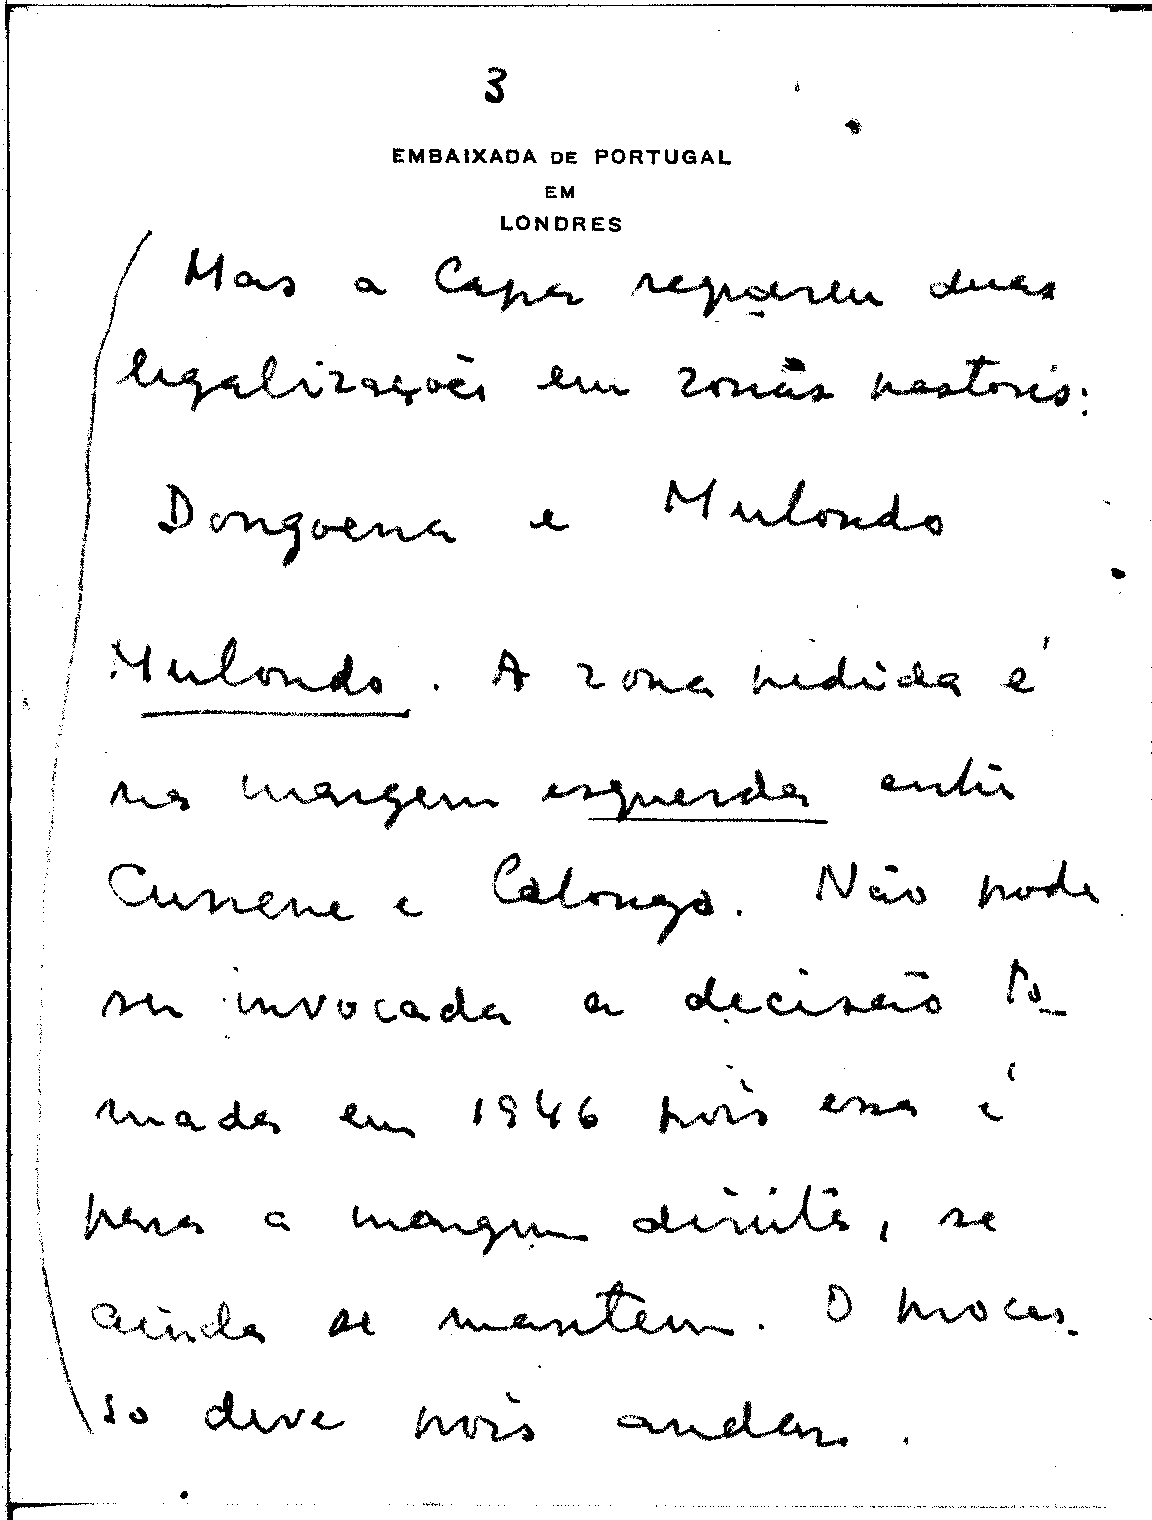 3
EMBAIXADA DE PORTUGAL
EM
LONDRES
Mas a Caper requereu duas
legalizações em zonas pastoris:
Dongoena e Mulondo
Mulondo. A zona pedida é
na margem esquerda entre
Cunene e Calonga. Não pode
ser invocada a decisão to-
mada em 1946 pois essa é
para a margem direita, se
ainda se mantem. O proces-
so deve pois andar.